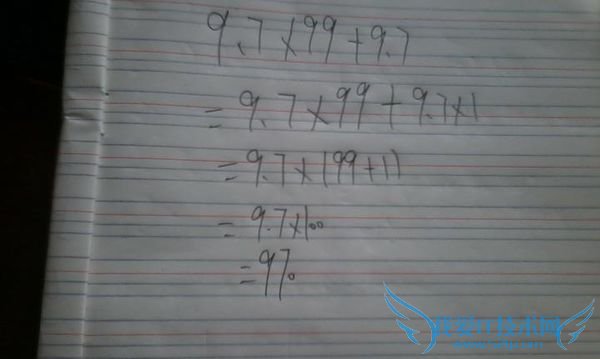 9.7×99+9.7
=9.7×99+9.7×1
=9.7×(99+1)
=9.7×100
=970